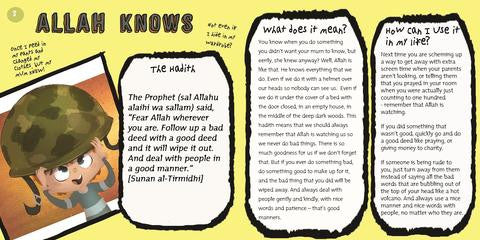 ALLAH KNOWS
Once I peed in
my pants and
changed my
clothes, but my
mum knew!
Not even if
I hide in my
wardrobe?
The Hadith
The Prophet (sal Allahu
alaihi wa sallam) said,
"Fear Allah wherever
you are. Follow up a bad
deed with a good deed
and it will wipe it out.
And deal with people in
a good manner."
[Sunan al-Tirmidhi]
What does it mean?
You know when you do something
you didn't want your mum to know, but
eerily, she knew anyway? Well, Allah is
like that. He knows everything that we
do. Even if we do it with a helmet over
our heads so nobody can see us. Even if
we do it under the cover of a bed with
the door closed, in an empty house, in
the middle of the deep dark woods. This
hadith means that we should always
remember that Allah is watching us so
we never do bad things. There is so
much goodness for us if we don't forget
that. But if you ever do something bad,
do something good to make up for it,
and the bad thing that you did will be
wiped away. And always deal with
people gently and kindly, with nice
words and patience – that's good
manners.
How can I use it
in my life?
Next time you are scheming up
a way to get away with extra
screen time when your parents
aren't looking, or telling them
that you prayed in your room
when you were actually just
counting to one hundred
- remember that Allah is
watching.
If you did something that
wasn't good, quickly go and do
a good deed like praying, or
giving money to charity.
If someone is being rude to
you, just turn away from them
instead of saying all the bad
words that are bubbling out of
the top of your head like a hot
volcano. And always use a nice
manner and nice words with
people, no matter who they are.